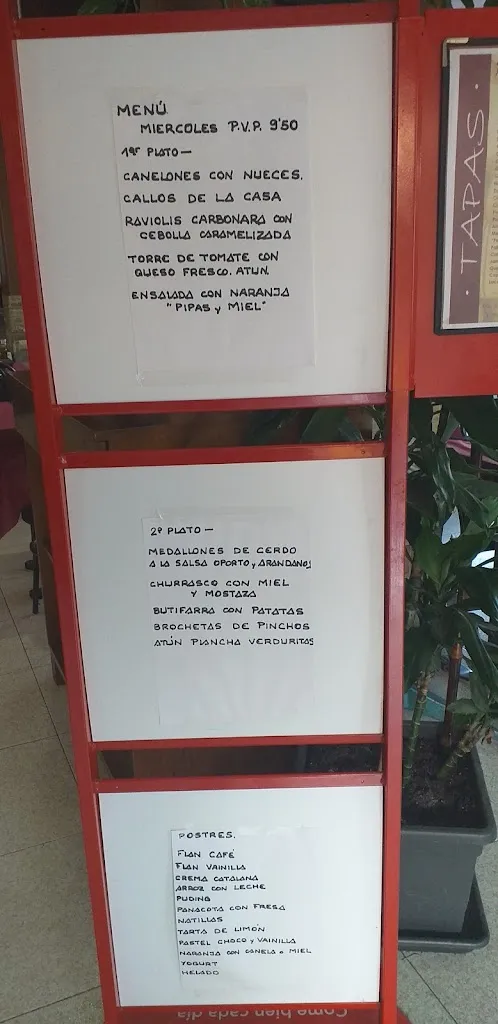 MENÚ
MIERCOLES P.V.P. 9'50
1er PLATO —
CANELONES CON NUECES.
CALLOS DE LA CASA
RAVIOLIS CARBONARA CON
CEBOLLA CARAMELIZADA
TORRE DE TOMATE CON
QUESO FRESCO. ATUN.
ENSALADA CON NARANJA
"PIPAS y MIEL"
· TAPAS ·
2º PLATO —
MEDALLONES DE CERDO
A LA SALSA OPORTO y ARANDANOS
CHURRASCO CON MIEL
Y MOSTAZA
BUTIFARRA CON PATATAS
BROCHETAS DE PINCHOS
ATÚN PLANCHA VERDURITAS
POSTRES.
FLAN CAFÉ
FLAN VAINILLA
CREMA CATALANA
ARROZ CON LECHE
PUDING
PANACOTA CON FRESA
NATILLAS
TARTA DE LIMON
PASTEL CHOCO y VAINILLA
NARANJA CON CANELA o MIEL
YOGURT
HELADO
Come bien cada día